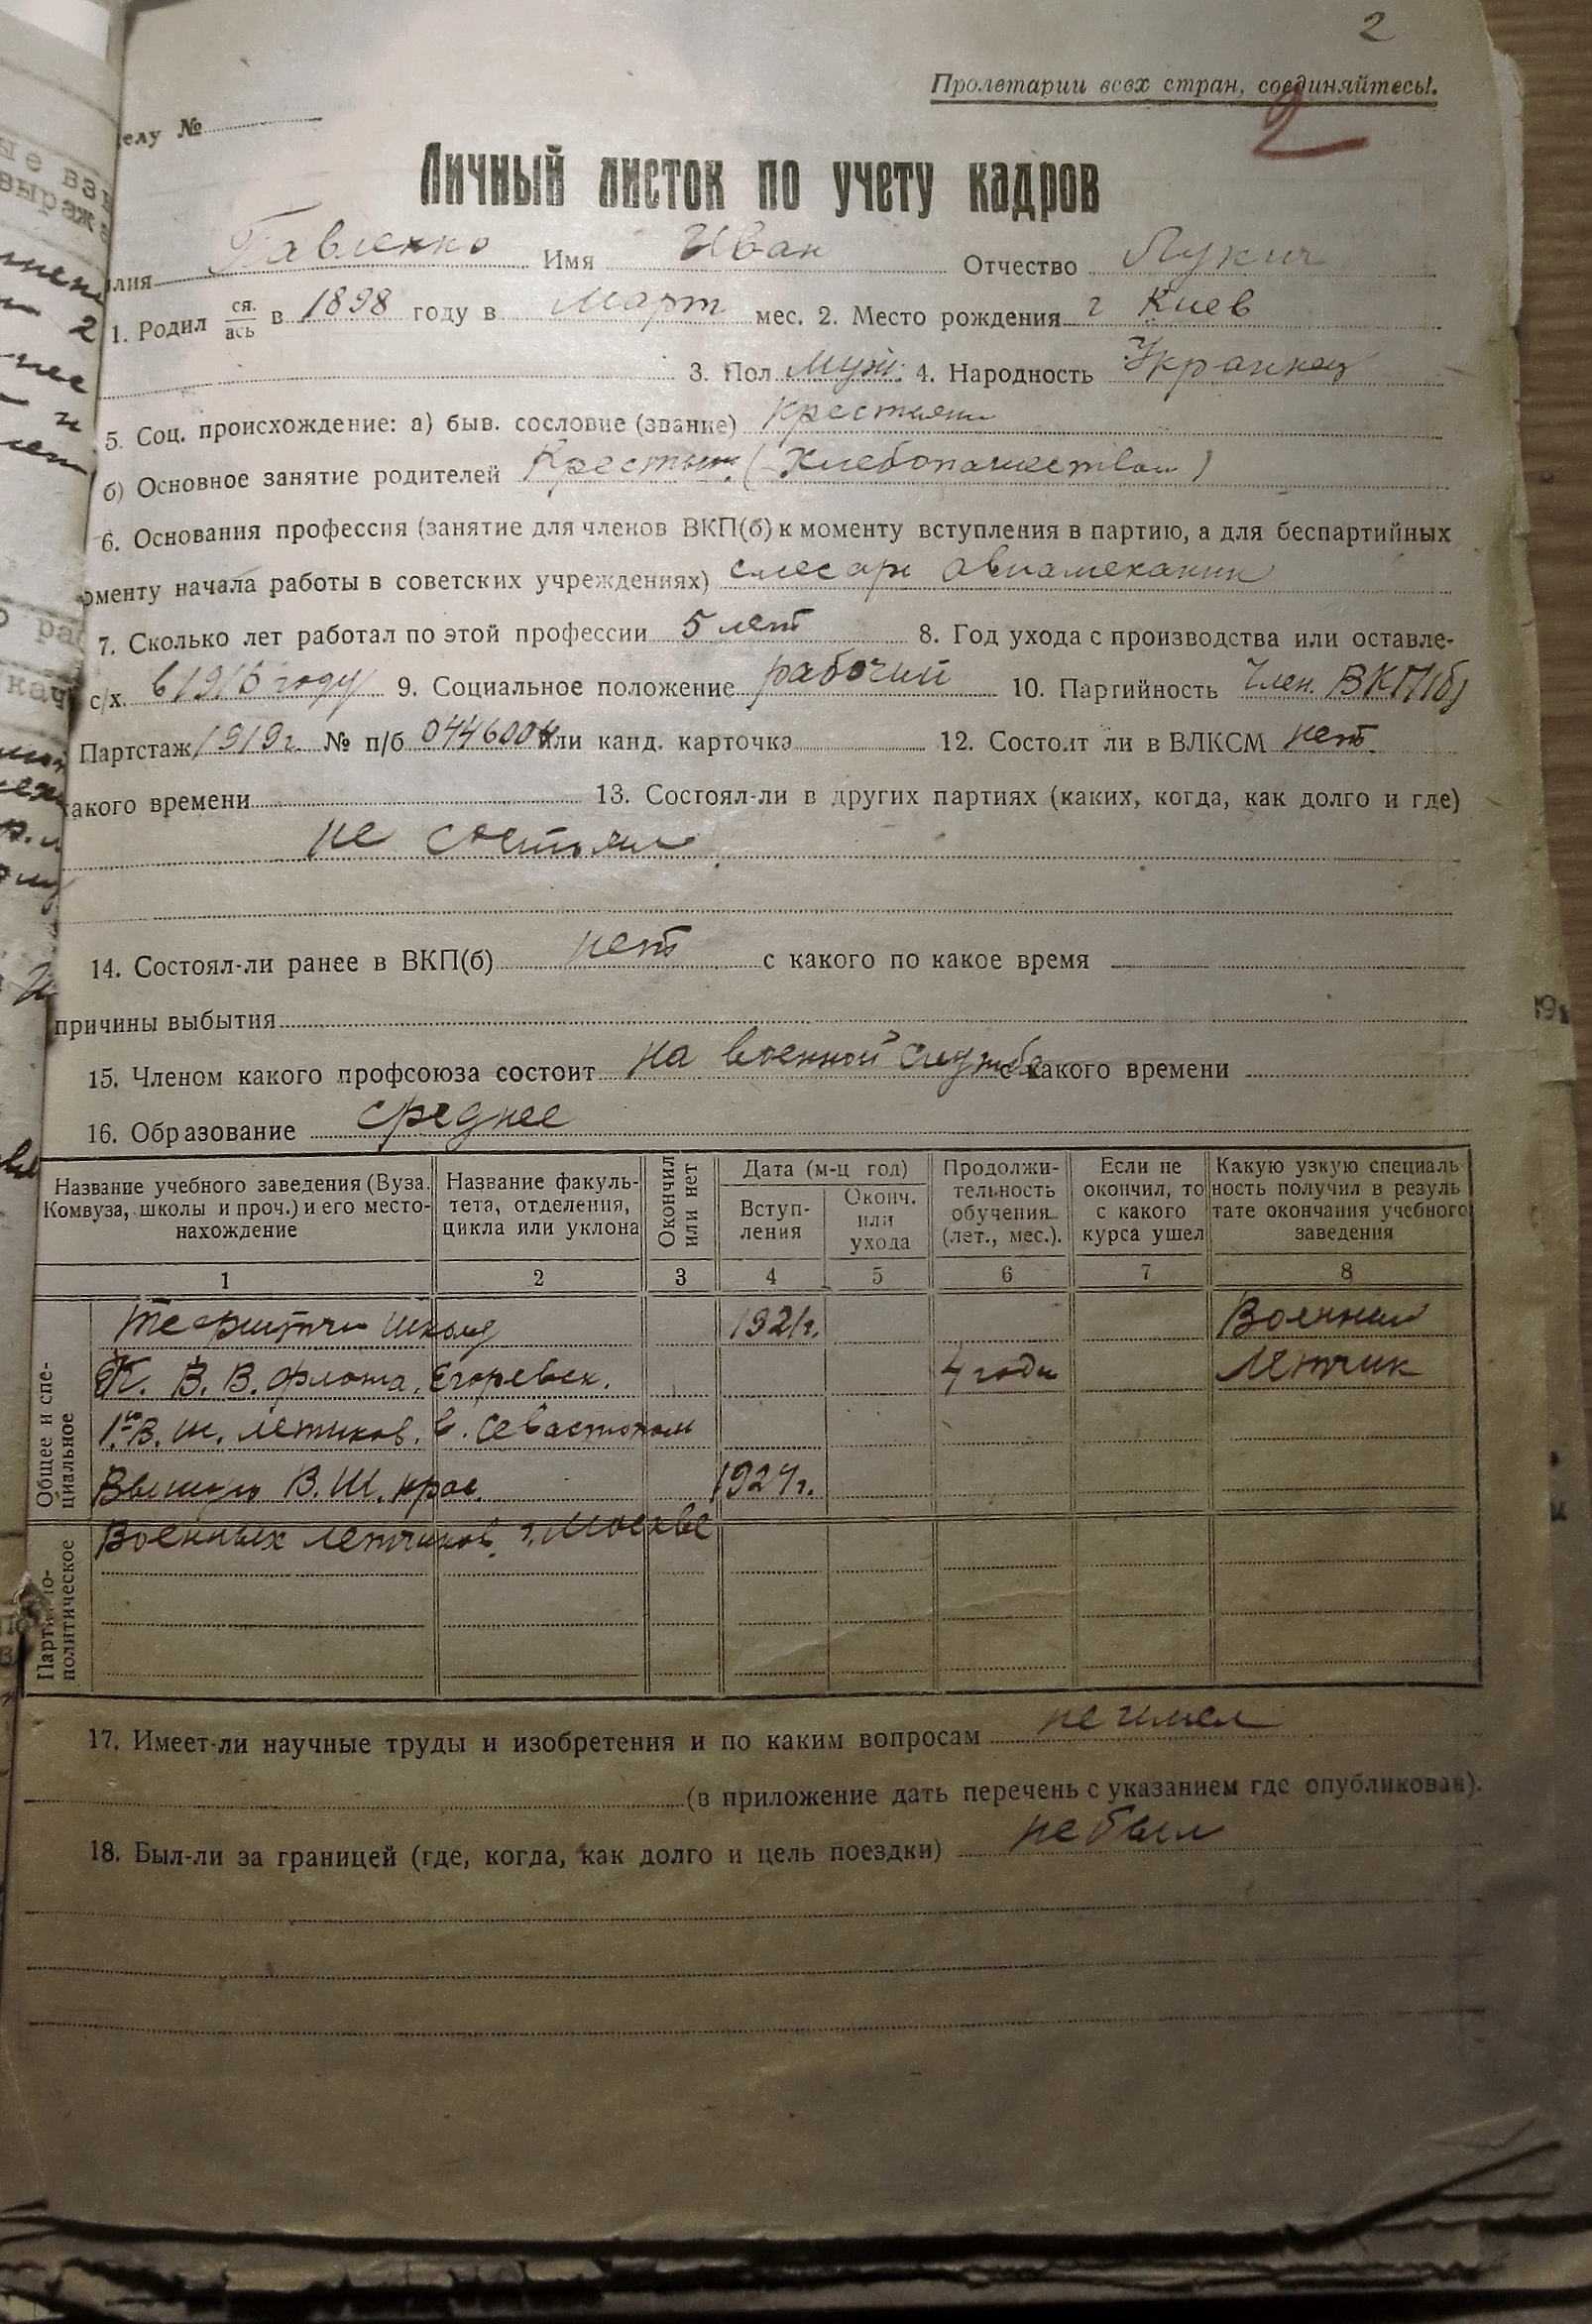 2
Пролетарии всех стран, соединяйтесь!.
2
делу №
Личный листок по учету кадров
лия Павленко Имя Иван Отчество Лукич
1. Родил ся. ась в 1898 году в Март мес. 2. Место рождения г Киев
3. Пол муж. 4. Народность Украинец
5. Соц. происхождение: а) быв. сословие (звание) крестьянин
б) Основное занятие родителей Крестьян. (Хлебопашеством)
6. Основания профессия (занятие для членов ВКП(б) к моменту вступления в партию, а для беспартийных
оменту начала работы в советских учреждениях) слесарь авиамеханик
7. Сколько лет работал по этой профессии 5 лет 8. Год ухода с производства или оставле-
с/х. в 1916 году 9. Социальное положение рабочий 10. Партийность Член. ВКП(б)
Партстаж 1919г. № п/б 0446004 или канд. карточка 12. Состоит ли в ВЛКСМ нет.
какого времени 13. Состоял-ли в других партиях (каких, когда, как долго и где)
не состоял
14. Состоял-ли ранее в ВКП(б) нет с какого по какое время
причины выбытия
15. Членом какого профсоюза состоит на военной службе с какого времени
16. Образование среднее
Название учебного заведения (Вуза. Комвуза, школы и проч.) и его место- нахождение Название факуль- тета, отделения, цикла или уклона Окончил или нет Дата (м-ц год) Вступ- ления Оконч. или ухода Продолжи- тельность обучения (лет., мес.). Если не окончил, то с какого курса ушел Какую узкую специаль ность получил в резуль тате окончания учебного заведения
1 2 3 4 5 6 7 8
Общее и спе- циальное
школу 1921г. Военный
К. В. В. Флота, Егоревск. 4 года Летчик
1ю В. ш. летчиков. в. Севастополе
Высшую В. Ш. крас. 1924г.
Партийно- политическое
Военных летчиков. г. Москве
17. Имеет-ли научные труды и изобретения и по каким вопросам не имел
(в приложение дать перечень с указанием где опубликован).
18. Был-ли за границей (где, когда, как долго и цель поездки) не был